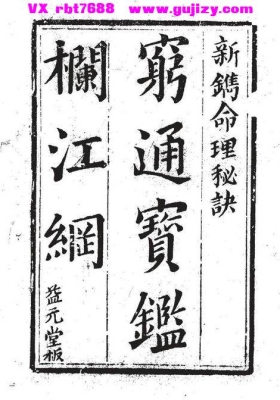 VX rbt7688 www.gujizy.com
新鐫命理秘訣
窮通寶鑑
欄江網
益元堂板